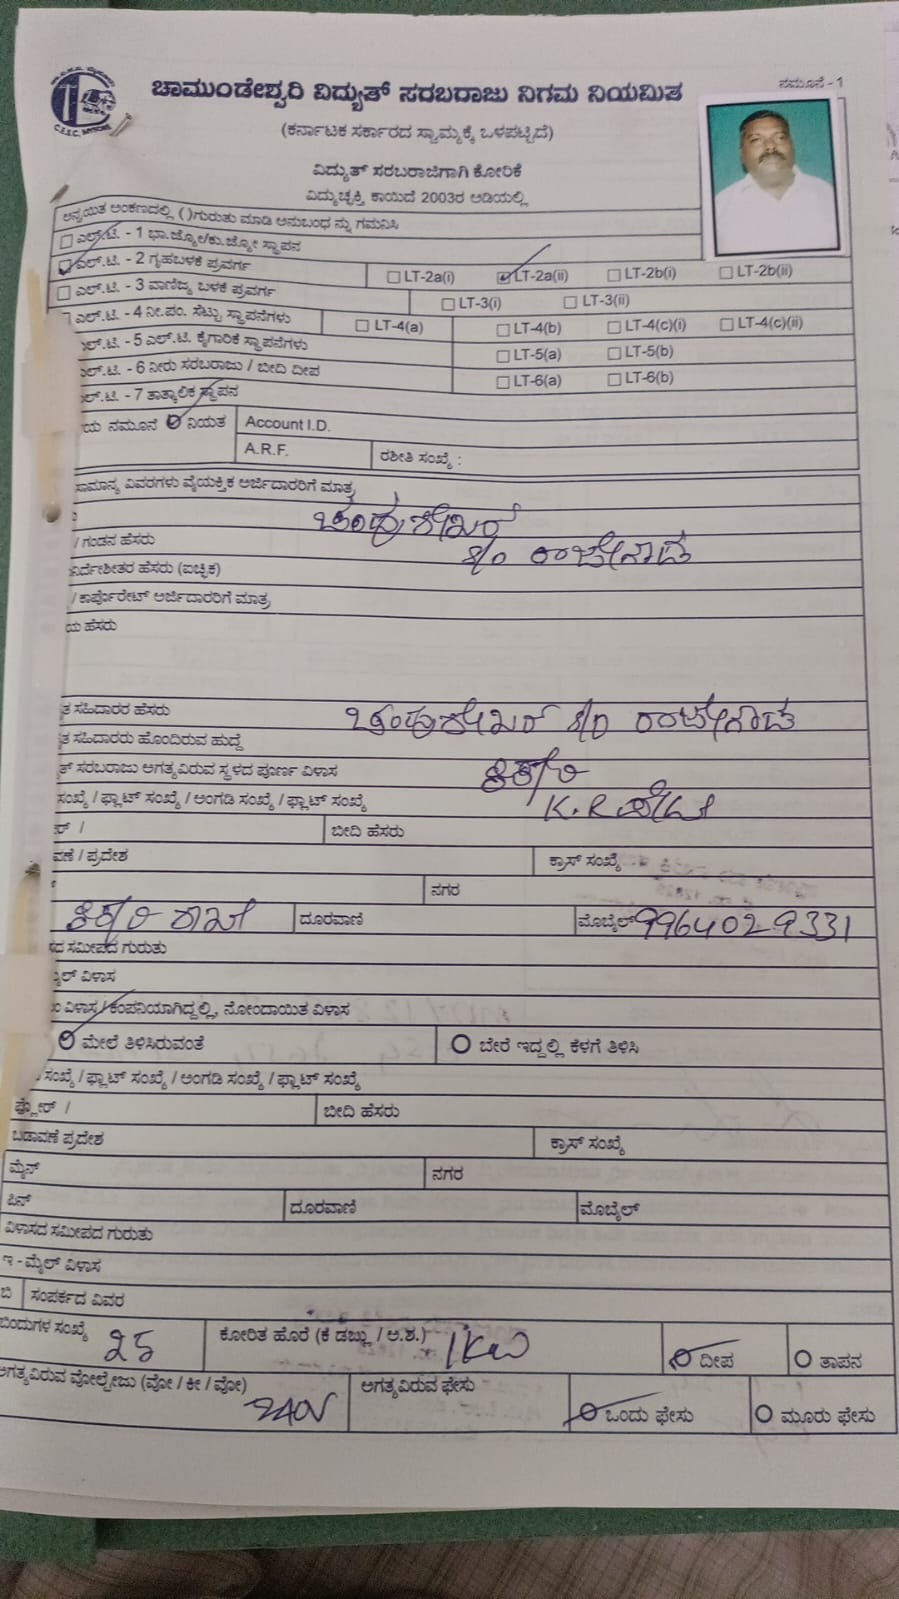 C.E.S.C, MYSORE
ನಮೂನೆ - 1
ಚಾಮುಂಡೇಶ್ವರಿ ವಿದ್ಯುತ್ ಸರಬರಾಜು ನಿಗಮ ನಿಯಮಿತ
(ಕರ್ನಾಟಕ ಸರ್ಕಾರದ ಸ್ವಾಮ್ಯಕ್ಕೆ ಒಳಪಟ್ಟಿದೆ)
ವಿದ್ಯುತ್ ಸರಬರಾಜಿಗಾಗಿ ಕೋರಿಕೆ
ವಿದ್ಯುಚ್ಛಕ್ತಿ ಕಾಯಿದೆ 2003ರ ಅಡಿಯಲ್ಲಿ
ಅನ್ವಯಿತ ಅಂಕಣದಲ್ಲಿ ( )ಗುರುತು ಮಾಡಿ ಅನುಬಂಧ ನ್ನು ಗಮನಿಸಿ
ಎಲ್.ಟಿ. - 1 ಭಾ.ಜ್ಯೋ/ಕು.ಜ್ಯೋ ಸ್ಥಾಪನ
ಎಲ್.ಟಿ. - 2 ಗೃಹಬಳಕೆ ಪ್ರವರ್ಗ LT-2a(i) LT-2a(ii) LT-2b(i) LT-2b(ii)
ಎಲ್.ಟಿ. - 3 ವಾಣಿಜ್ಯ ಬಳಕೆ ಪ್ರವರ್ಗ LT-3(i) LT-3(ii)
ಎಲ್.ಟಿ. - 4 ನೀ.ಪಂ. ಸೆಟ್ಟು ಸ್ಥಾಪನೆಗಳು LT-4(a) LT-4(b) LT-4(c)(i) LT-4(c)(ii)
ಲ್.ಟಿ. - 5 ಎಲ್.ಟಿ. ಕೈಗಾರಿಕೆ ಸ್ಥಾಪನೆಗಳು LT-5(a) LT-5(b)
ಲ್.ಟಿ. - 6 ನೀರು ಸರಬರಾಜು / ಬೀದಿ ದೀಪ LT-6(a) LT-6(b)
ಲ್.ಟಿ. - 7 ತಾತ್ಕಾಲಿಕ ಸ್ಥಾಪನ
ಯ ನಮೂನೆ ನಿಯತ Account I.D.
A.R.F. ರಶೀತಿ ಸಂಖ್ಯೆ :
ಸಾಮಾನ್ಯ ವಿವರಗಳು ವೈಯಕ್ತಿಕ ಅರ್ಜಿದಾರರಿಗೆ ಮಾತ್ರ
ಚಂದ್ರಶೇಖರ್
/ ಗಂಡನ ಹೆಸರು S/O ರಾಜೇಗೌಡ
ನಿರ್ದೇಶೀತರ ಹೆಸರು (ಐಚ್ಛಿಕ)
/ ಕಾರ್ಪೊರೇಟ್ ಅರ್ಜಿದಾರರಿಗೆ ಮಾತ್ರ
ಯ ಹೆಸರು
ತ ಸಹಿದಾರರ ಹೆಸರು ಚಂದ್ರಶೇಖರ್ S/O ರಾಜೇಗೌಡ
ತ ಸಹಿದಾರರು ಹೊಂದಿರುವ ಹುದ್ದೆ
ತ್ ಸರಬರಾಜು ಅಗತ್ಯವಿರುವ ಸ್ಥಳದ ಪೂರ್ಣ ವಿಳಾಸ
ಸಂಖ್ಯೆ / ಫ್ಲಾಟ್ ಸಂಖ್ಯೆ / ಅಂಗಡಿ ಸಂಖ್ಯೆ / ಫ್ಲಾಟ್ ಸಂಖ್ಯೆ K.R ಪೇಟೆ
ರ್ / ಬೀದಿ ಹೆಸರು
ವಣೆ / ಪ್ರದೇಶ ಕ್ರಾಸ್ ಸಂಖ್ಯೆ
ನಗರ
ದೂರವಾಣಿ ಮೊಬೈಲ್ 9964029331
ಸದ ಸಮೀಪದ ಗುರುತು
ಮೈಲ್ ವಿಳಾಸ
ವಿಳಾಸ / ಕಂಪನಿಯಾಗಿದ್ದಲ್ಲಿ, ನೋಂದಾಯಿತ ವಿಳಾಸ
ಮೇಲೆ ತಿಳಿಸಿರುವಂತೆ ಬೇರೆ ಇದ್ದಲ್ಲಿ ಕೆಳಗೆ ತಿಳಿಸಿ
ಸಂಖ್ಯೆ / ಫ್ಲಾಟ್ ಸಂಖ್ಯೆ / ಅಂಗಡಿ ಸಂಖ್ಯೆ / ಫ್ಲಾಟ್ ಸಂಖ್ಯೆ
ಫ್ಲೋರ್ / ಬೀದಿ ಹೆಸರು
ಬಡಾವಣೆ ಪ್ರದೇಶ ಕ್ರಾಸ್ ಸಂಖ್ಯೆ
ಮೈನ್ ನಗರ
ಪಿನ್ ದೂರವಾಣಿ ಮೊಬೈಲ್
ವಿಳಾಸದ ಸಮೀಪದ ಗುರುತು
ಇ - ಮೈಲ್ ವಿಳಾಸ
ಬಿ ಸಂಪರ್ಕದ ವಿವರ
ಬಿಂದುಗಳ ಸಂಖ್ಯೆ 25 ಕೋರಿತ ಹೊರೆ (ಕೆ ಡಬ್ಲ್ಯು / ಅ.ಶ.) 1KW ದೀಪ ತಾಪನ
ಅಗತ್ಯವಿರುವ ವೋಲ್ಟೇಜು (ವೋ / ಕೀ / ವೋ) 240V ಅಗತ್ಯವಿರುವ ಫೇಸು ಒಂದು ಫೇಸು ಮೂರು ಫೇಸು